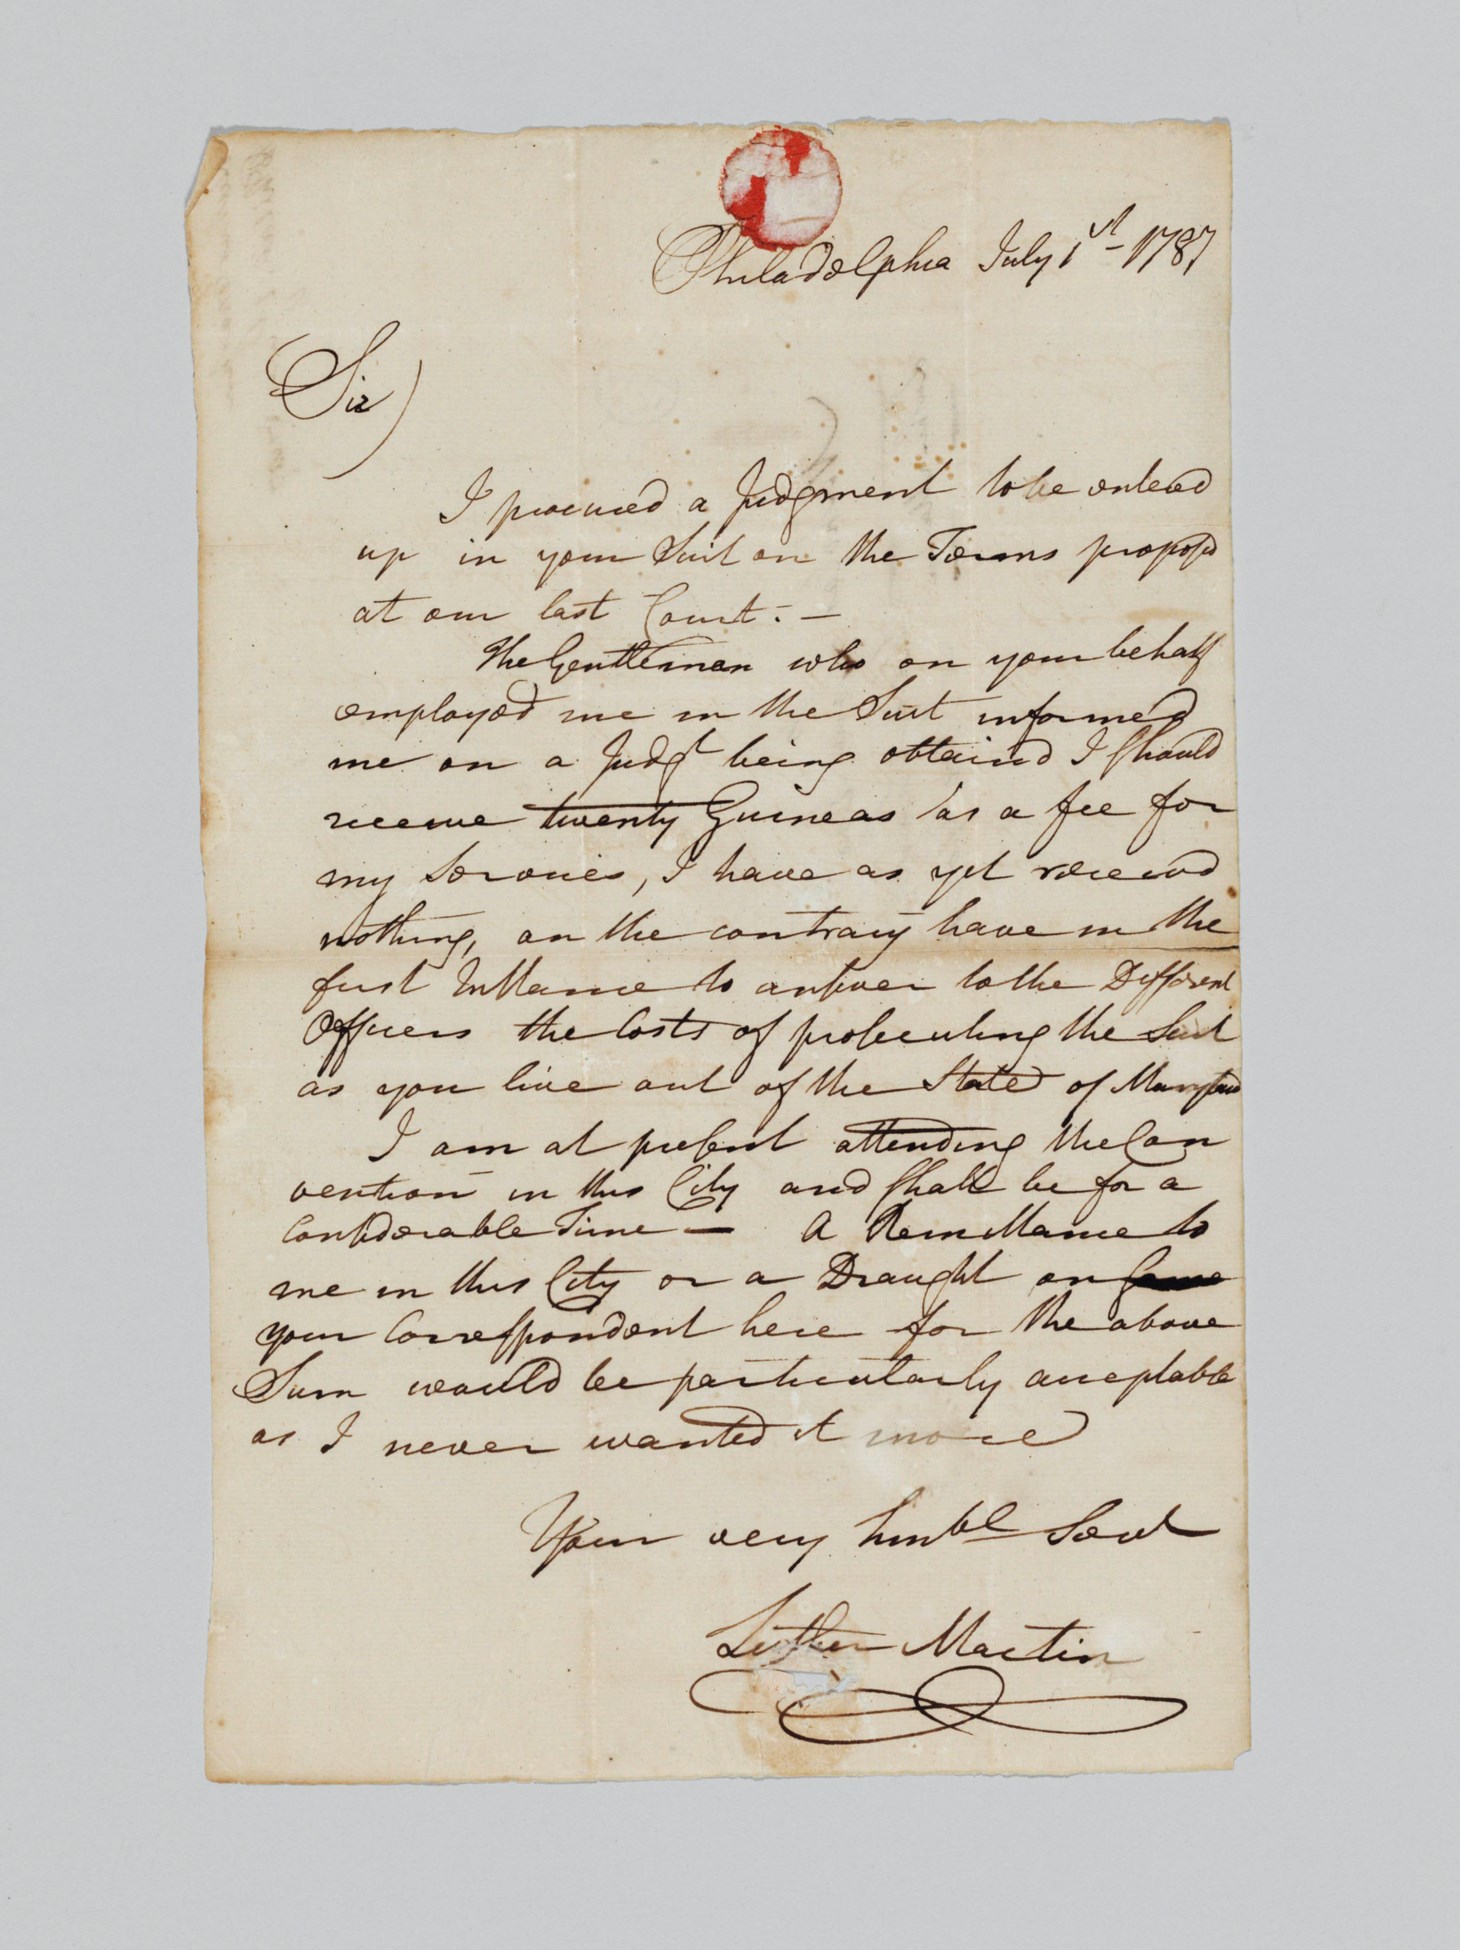 Philadelphia July 1st 1787
Sir
I procured a Judgment to be entered
up in your Suit on the Terms proposd
at our last Court. —
The Gentleman who on your behalf
employed me in the Suit informed
me on a Judgt being obtaind I should
receive twenty Guineas as a fee for
my Services, I have as yet received
nothing, on the contrary have in the
first Instance to answer to the Different
Officers the Costs of prosecuting the Suit
as you live out of the State of Maryland
I am at present attending the Con
vention in this City and shall be for a
Considerable Time — A Remittance to
me in this City or a Draught on
your Correspondent here for the above
Sum would be particularly acceptable
as I never wanted it more
Your very hmbl Servt
Luther Martin